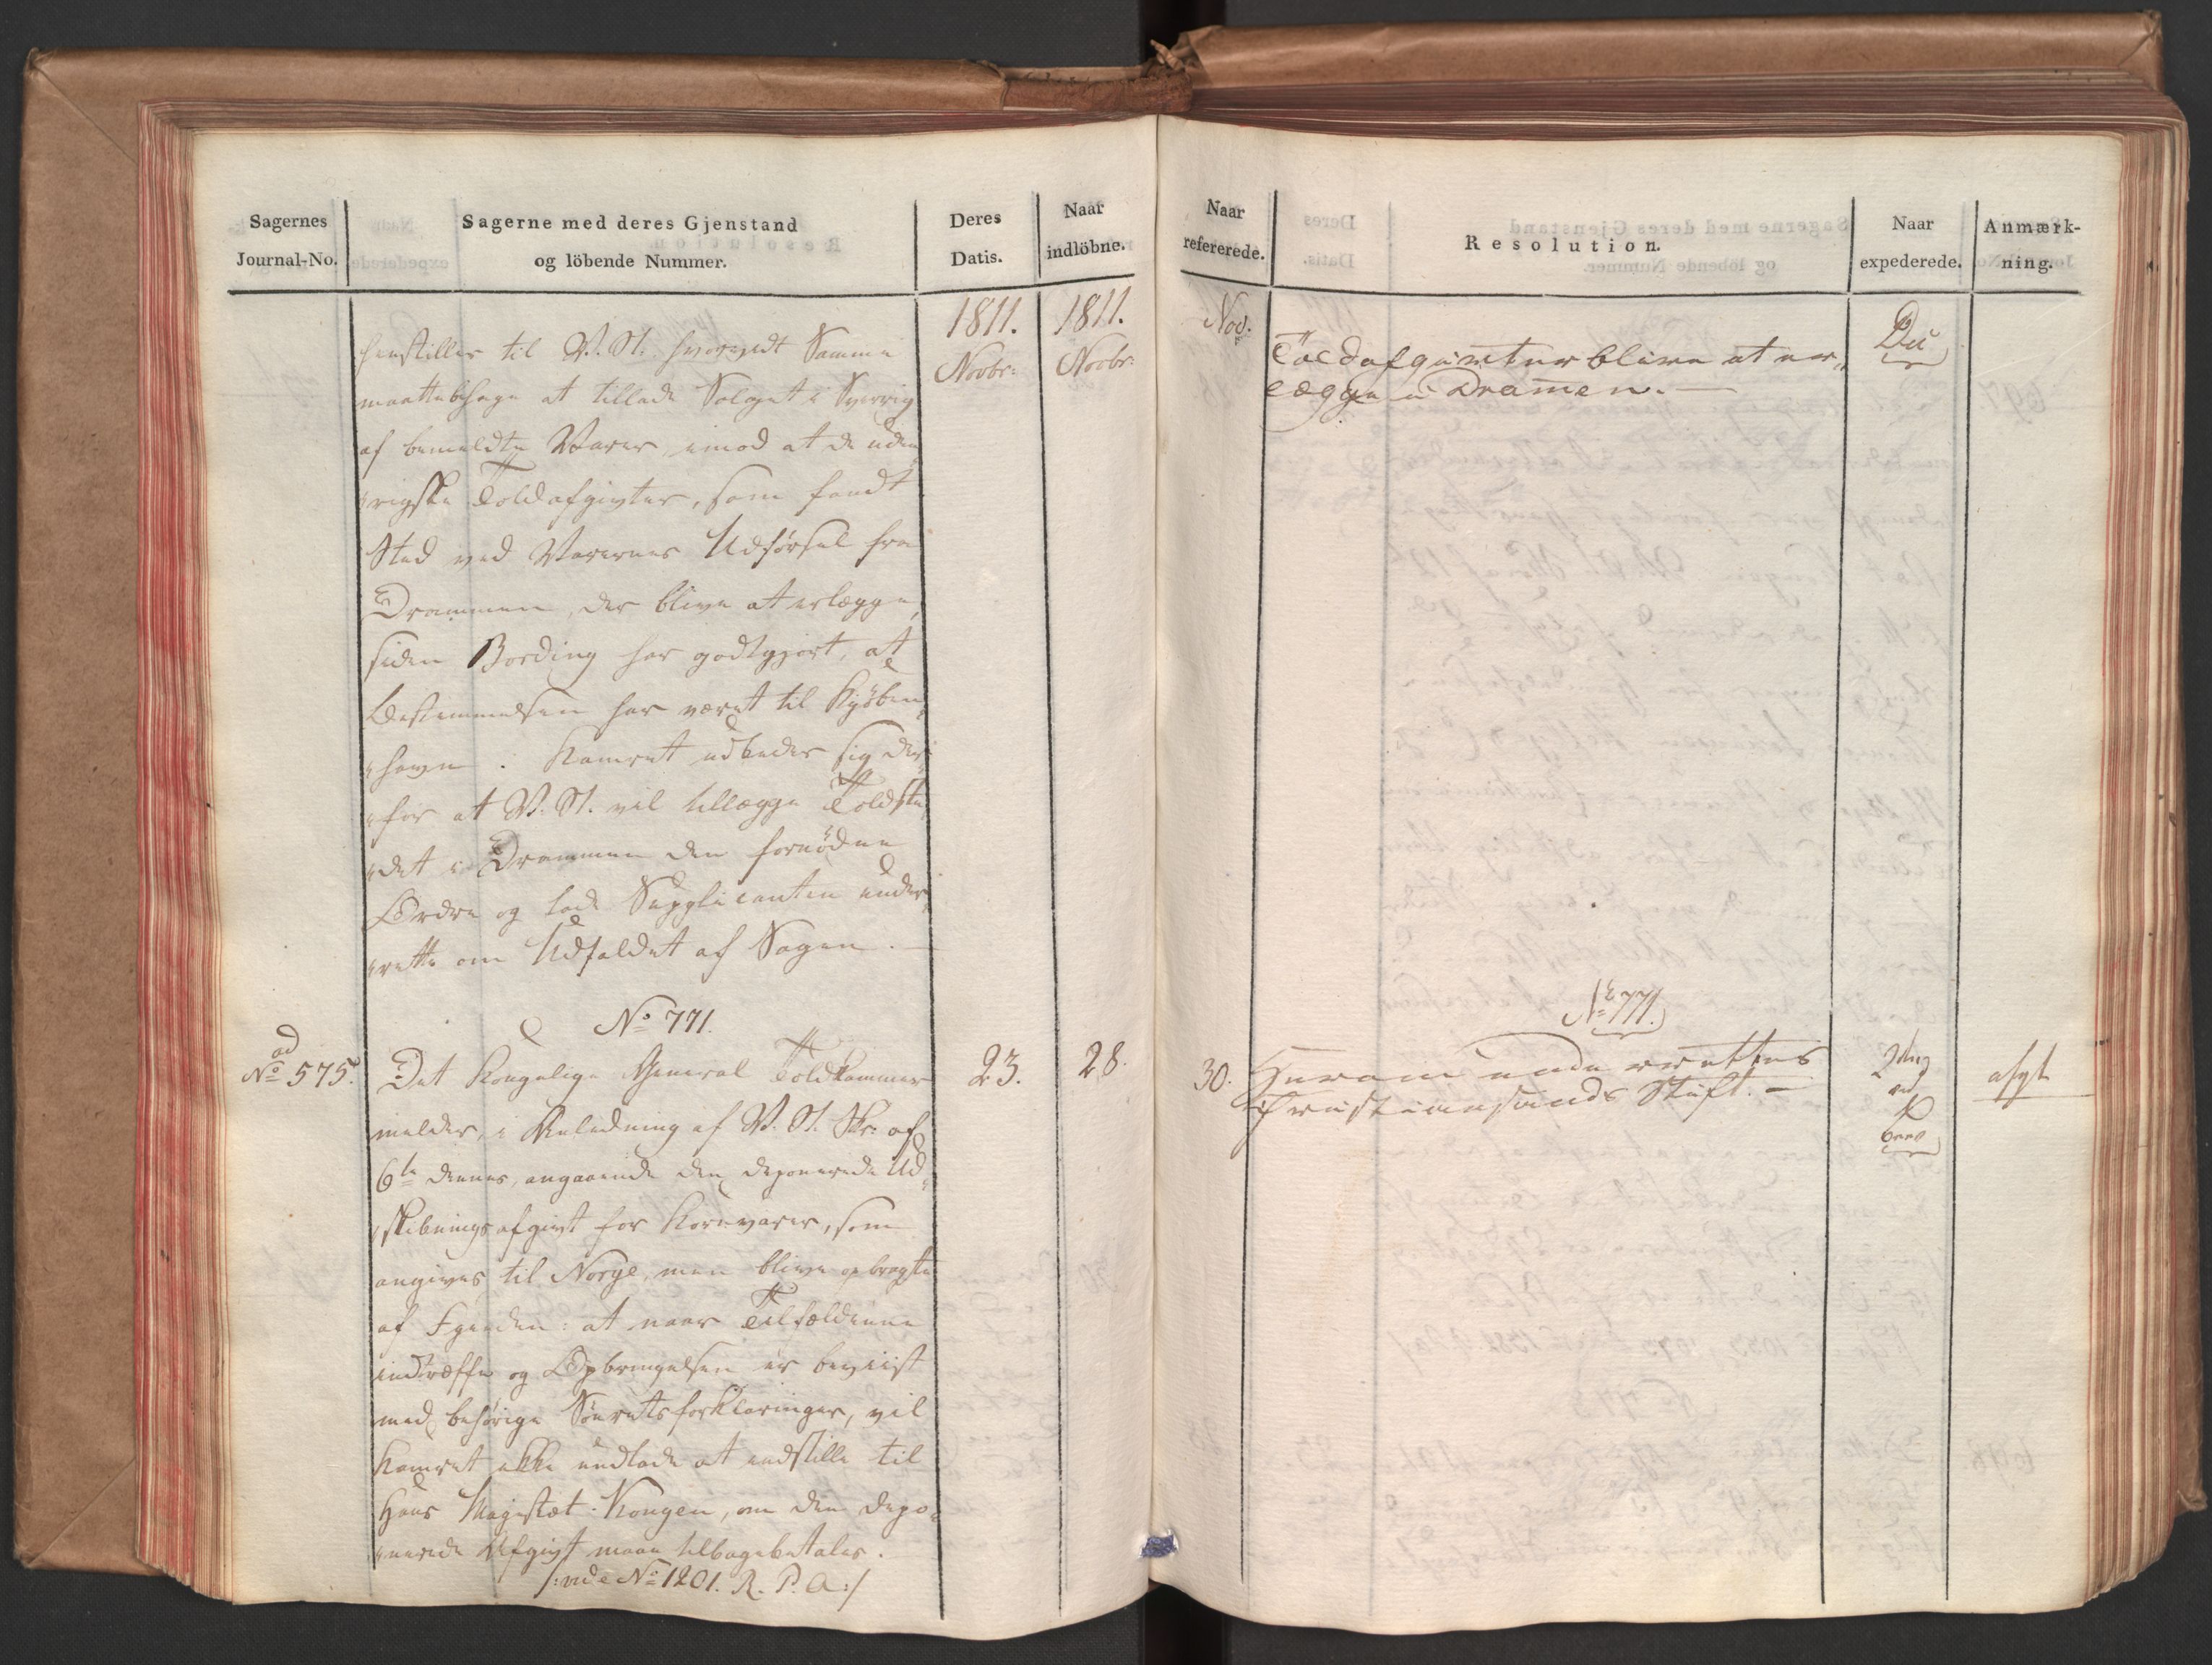 Sagernes
Journal-No.
Sagerne med deres Gjenstand
og löbende Nummer.
Deres
Datis.
Naar
indlöbne.
1811.
Novbr:
1811.
Novbr:
henstiller til V. St. hvorvidt Samme
maatte behage at tillade Salget i Sverrig
af bemeldte Varer, imod at de uden
rigske Toldafgivter, som fandt
Sted ved Varernes Udførsel fra
Drammen, der blive at erlægge,
siden Bording har godtgjort, at
Bestemmelsen har været til Kyøben
havn. Kamret udbeder sig der
for at V. St. vil tillægge Toldste
det i Drammen den fornødne
Ordre og lade Supplicanten under
rette om Udfaldet af Sagen. —
No 771.
ad
No 575.
Det Kongelige General Toldkammer
melder, i Anledning af V. St. Skr: af
6te dennes, angaaende den deponerede Ud-
skibningsafgivt for Kornvarer, som
angives til Norge, men blive opbragte
af Fjenden: at naar Tilfældene
indtræffe og Opbringelsen er beviist
med behørige Søeretsforklaringer, vil
Kamret ikke undlade at indstille til
Hans Majestæt Kongen, om den depo-
nerede Afgivt maae tilbagebetales.
/: vide No 1201. R. P. A :/
23.
28.
Naar
refererede.
Resolution.
Naar
expederede.
Anmærk-
ning.
Nov:
Toldafgivter blive at er-
lægge i Dramen. —
No 771.
30.
Herom underrettes
Christiansands Stift. —
Brev
afgl